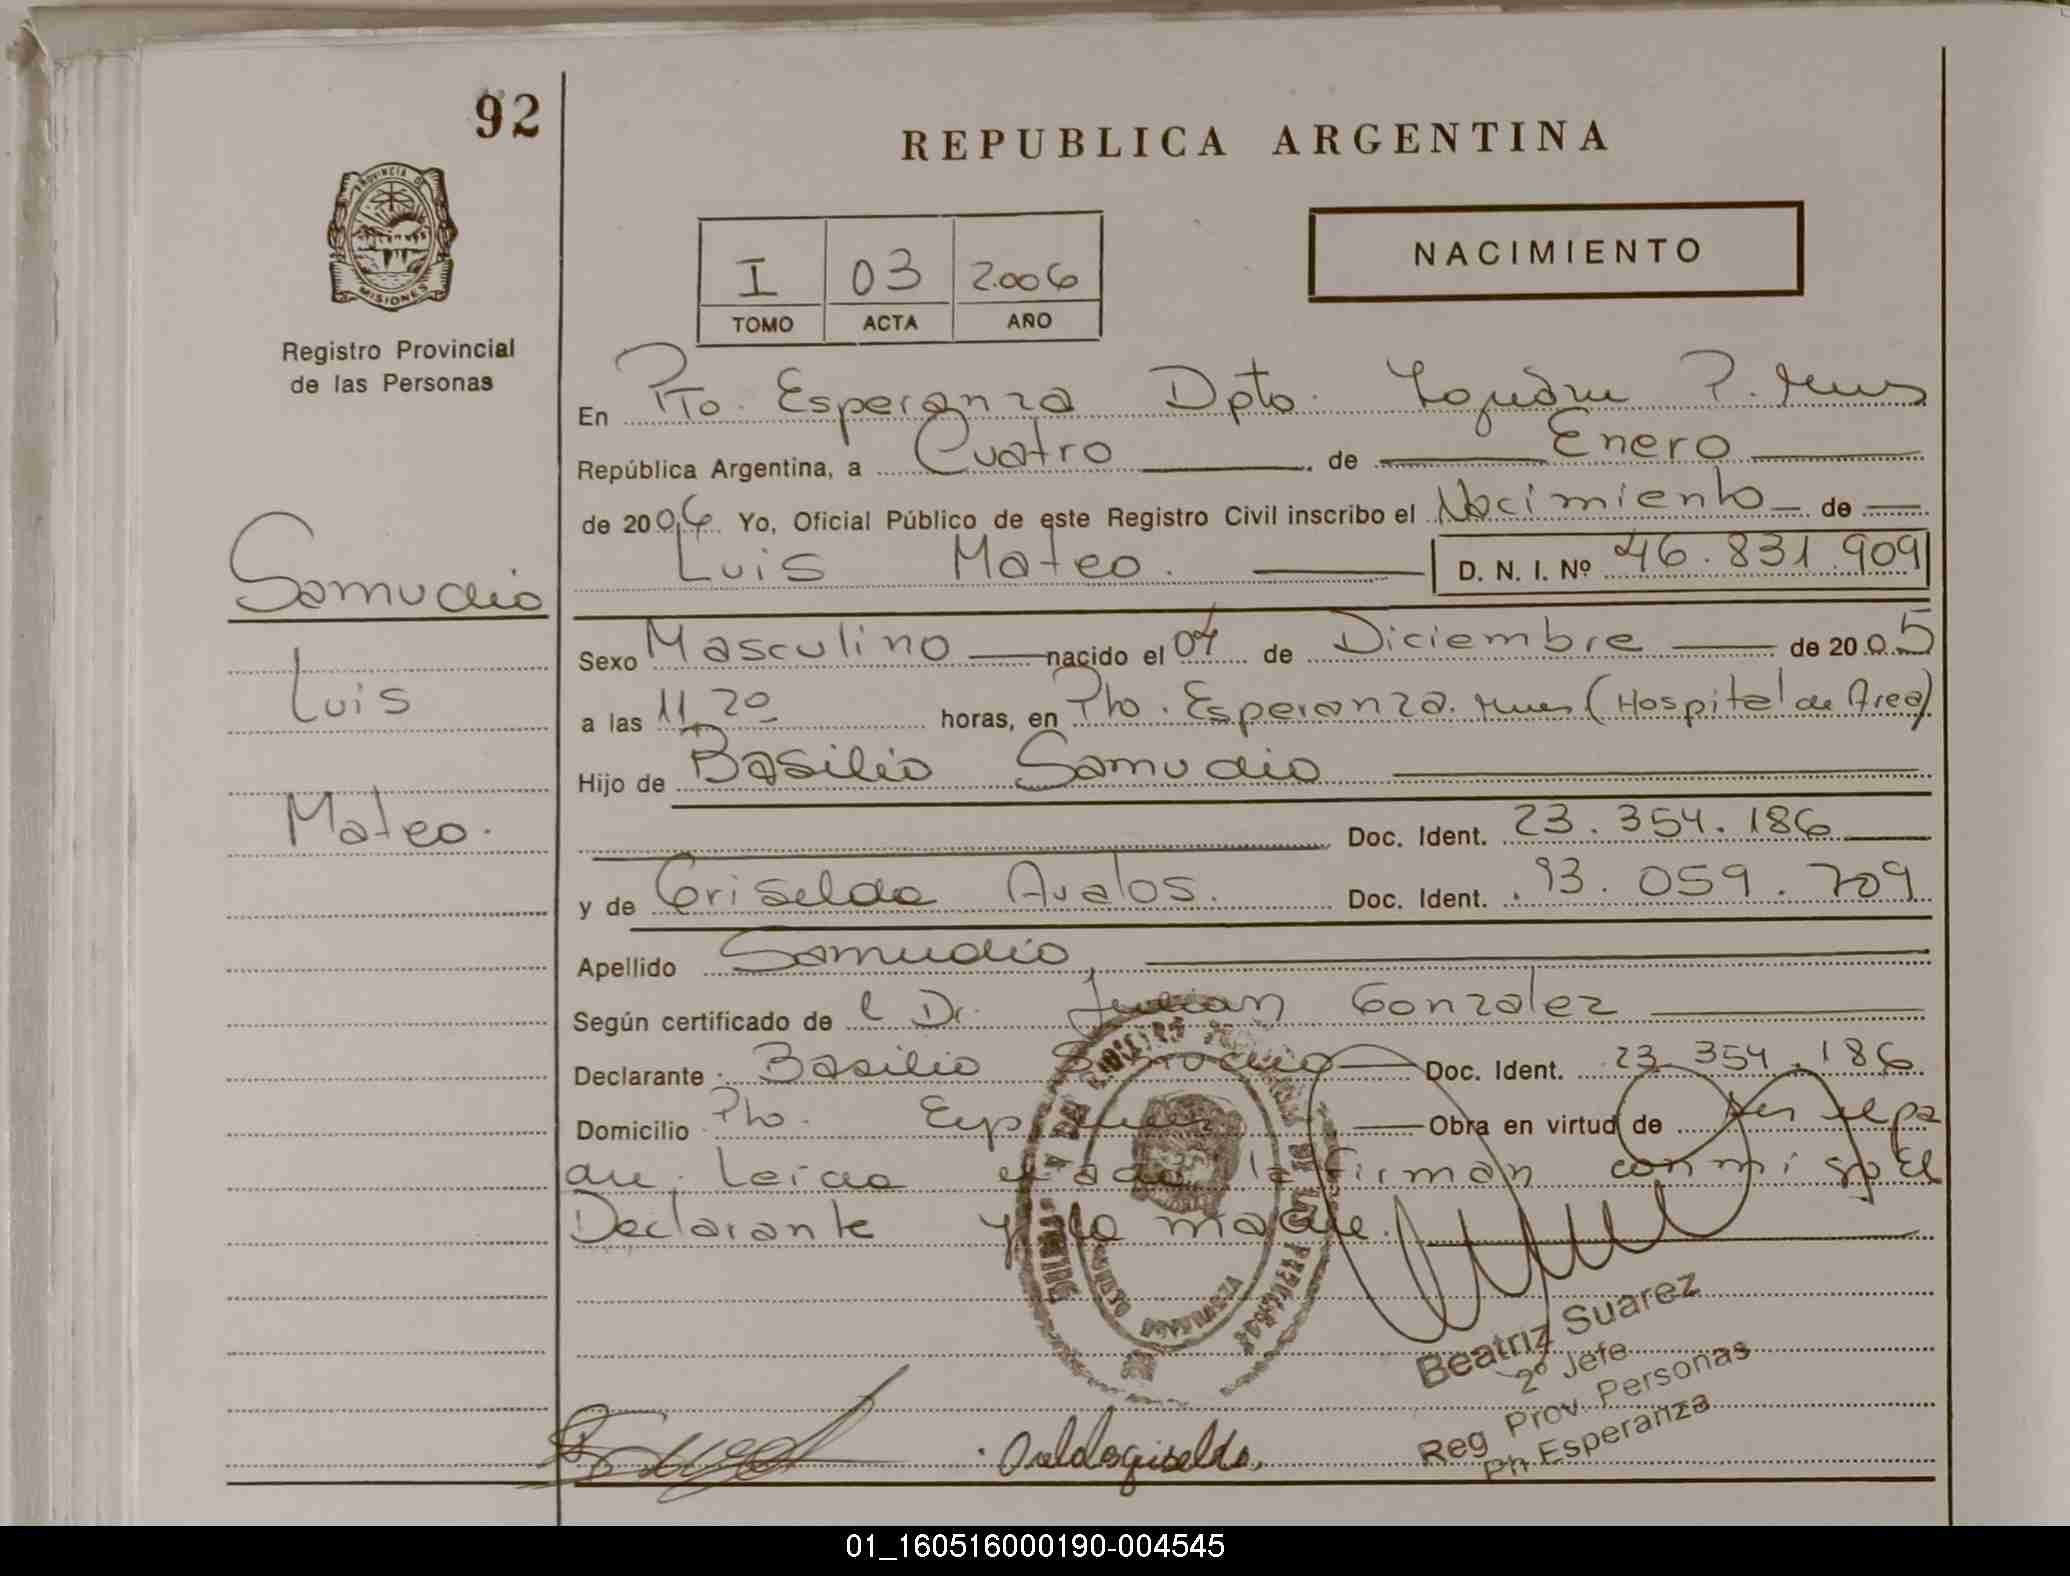 92
REPUBLICA ARGENTINA
PROVINCIA DE
MISIONES
Registro Provincial
de las Personas
I 03 2.006
TOMO ACTA AÑO
NACIMIENTO
En Pto. Esperanza Dpto. P. Mnes
República Argentina, a Cuatro de Enero
de 2006 Yo, Oficial Público de este Registro Civil inscribo el Nacimiento de
Luis Mateo. D. N. I. Nº 46.831.909
Samudio
Luis
Mateo.
Sexo Masculino nacido el 04 de Diciembre de 2005
a las 11,20 horas, en Pto. Esperanza. Mnes (Hospital de Area)
Hijo de Basilio Samudio
Doc. Ident. 23.354.186
y de Griselda Avalos. Doc. Ident. 93.059.709
Apellido Samudio,
Según certificado de l Dr. Julian Gonzalez
Declarante Basilio Samudio Doc. Ident. 23.354.186
Domicilio Pto. Esp Mnes Obra en virtud de
Leida el acta la firman conmigo El
Declarante y la madre.
Beatriz Suarez
2º Jefe
Reg Prov. Personas
Esperanza
01_160516000190-004545